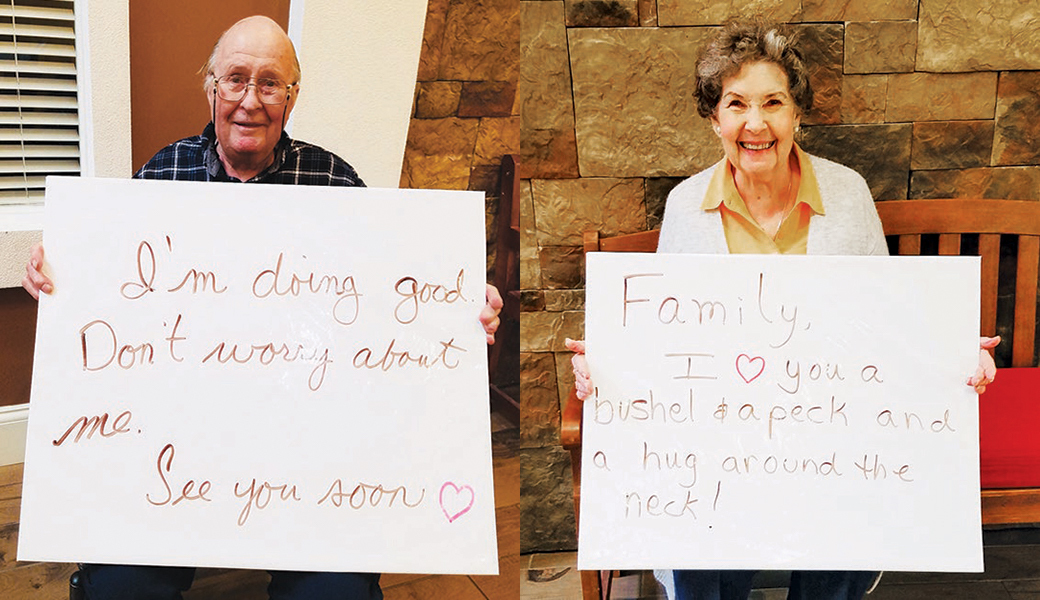 I'm doing good.
Don't worry about
me.
See you soon ♡
Family,
I ♡ you a
bushel & a peck and
a hug around the
neck!